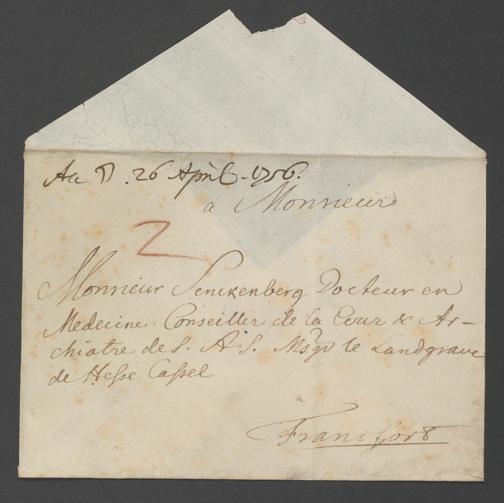 26 April. 1756.
a Monsieur
2
Monsieur Senckenberg Docteur en
Medecine Conseiller de la Cour & Ar-
chiatre de S. A. S. Msgr le Landgrave
de Hesse Cassel
a
Francfort